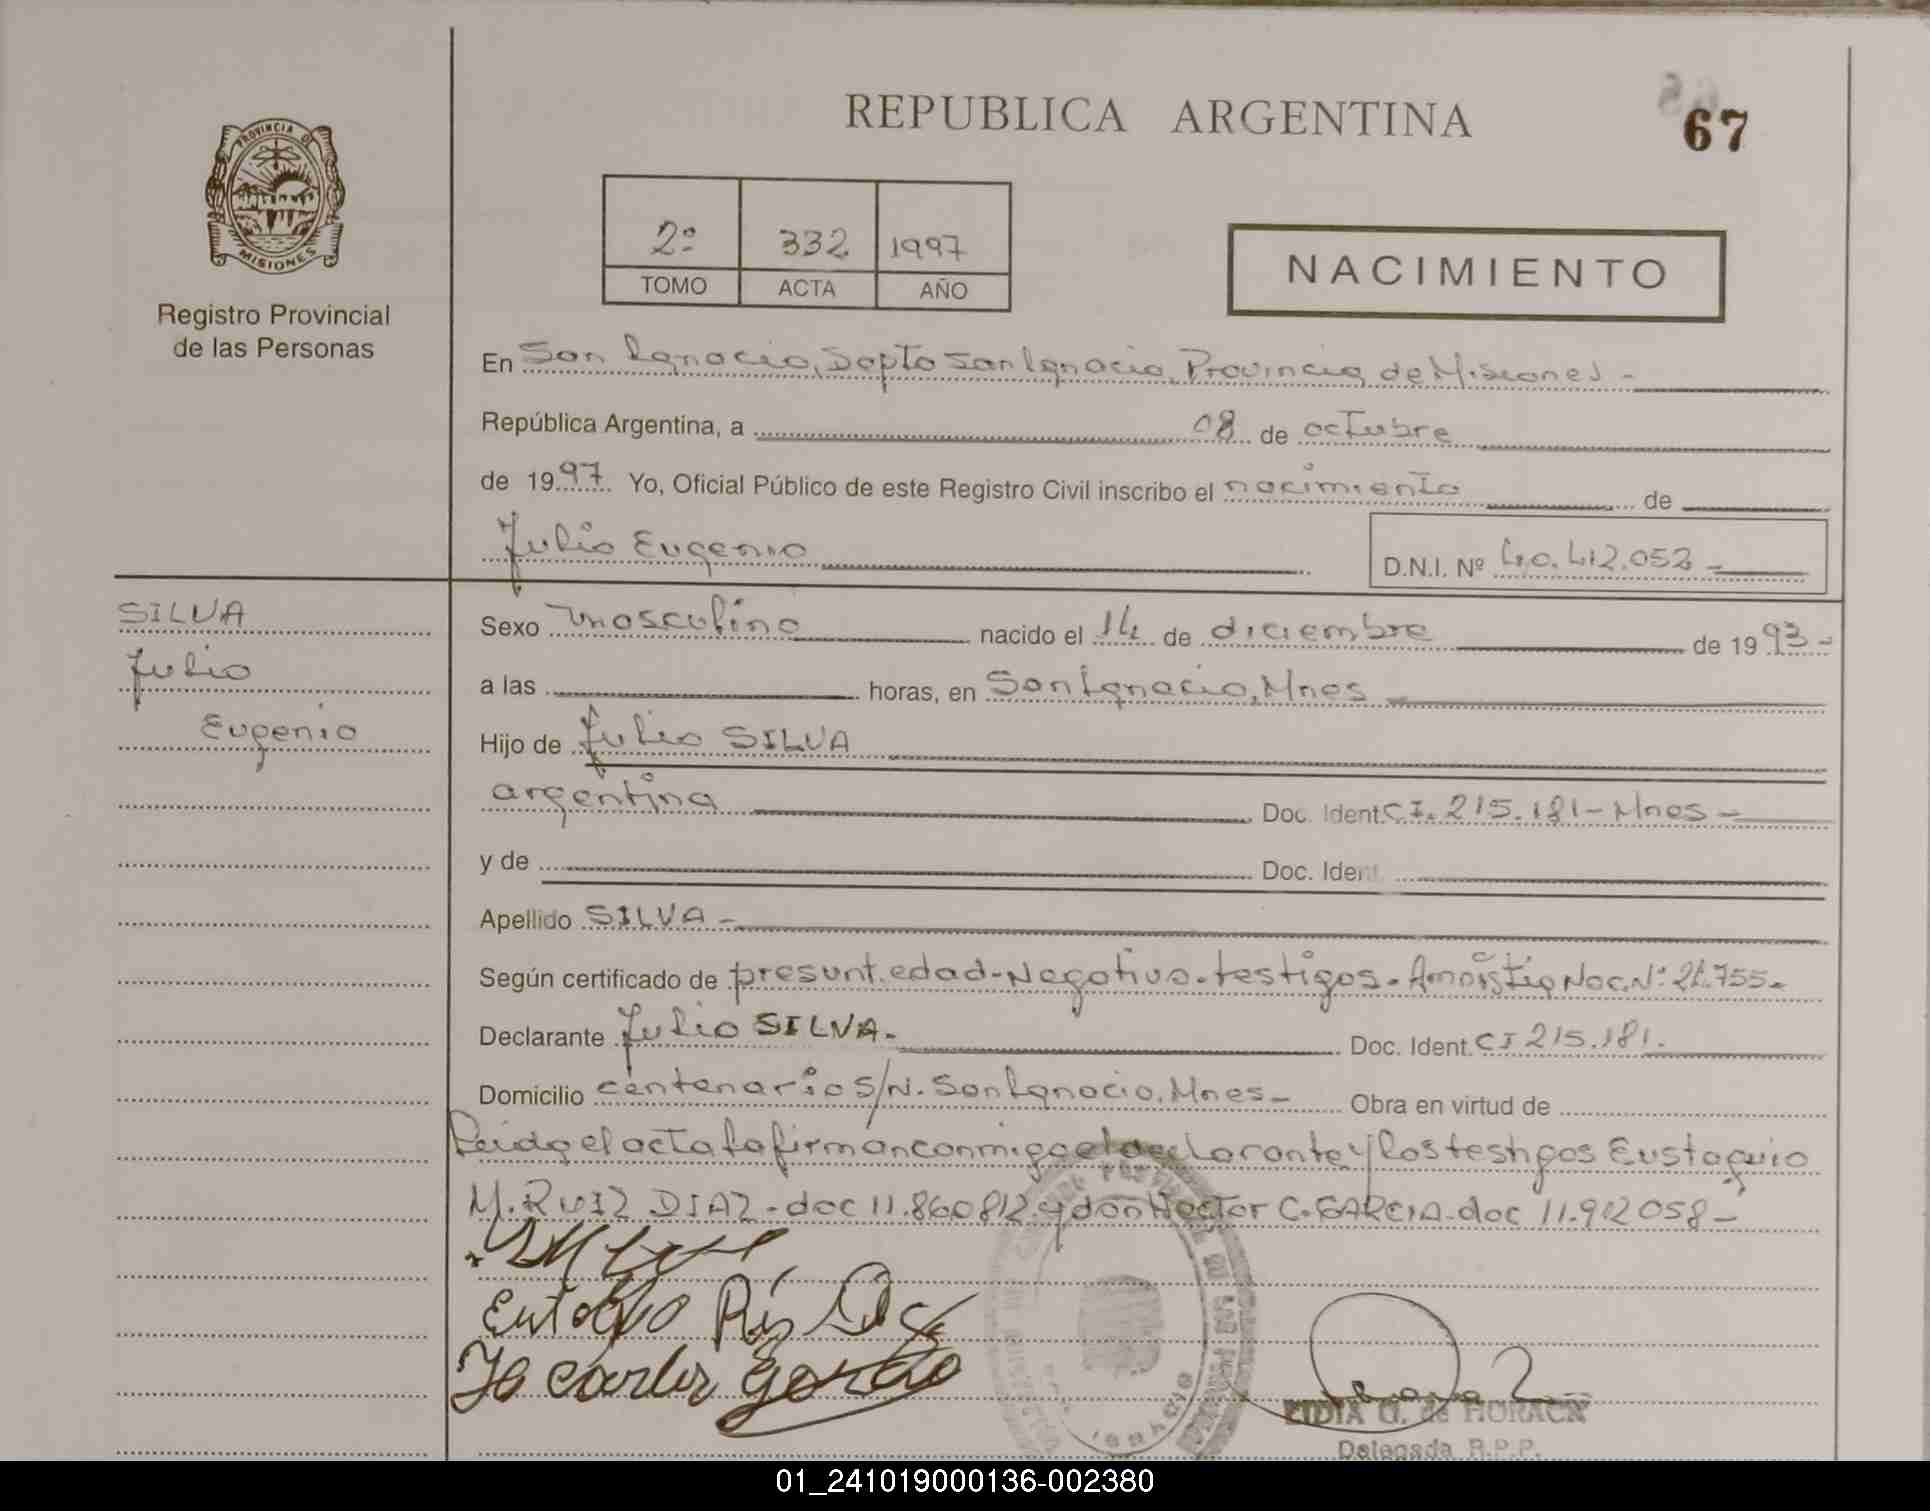 REPUBLICA ARGENTINA
67
PROVINCIA DE
MISIONES
Registro Provincial
de las Personas
2º 332 1997
TOMO ACTA AÑO
NACIMIENTO
En San Ignacio, Depto San Ignacio, Provincia de Misiones -
República Argentina, a 08 de octubre
de 1997. Yo, Oficial Público de este Registro Civil inscribo el nacimiento de
Julio Eugenio
D.N.I. Nº 40.412.052 -
SILVA
Julio
Eugenio
Sexo masculino nacido el 14 de diciembre de 1993 -
a las horas, en San Ignacio, Mnes
Hijo de Julio SILVA
argentino Doc. Ident. C.I. 215.181 - Mnes -
y de Doc. Ident.
Apellido SILVA -
Según certificado de presunt. edad - Negativo - testigos - Amnistia Nac. Nº 21.755 -
Declarante Julio SILVA - Doc. Ident. CI 215.181.
Domicilio centenario S/N. San Ignacio, Mnes - Obra en virtud de
Leida el acta la firman conmigo el declarante y los testigos Eustaquio
M. RUIZ DIAZ - doc 11.860812 y don Hector C. GARCIA - doc 11.912058 -
LIDIA G. de HORACK
Delegada R.P.P.
01_241019000136-002380